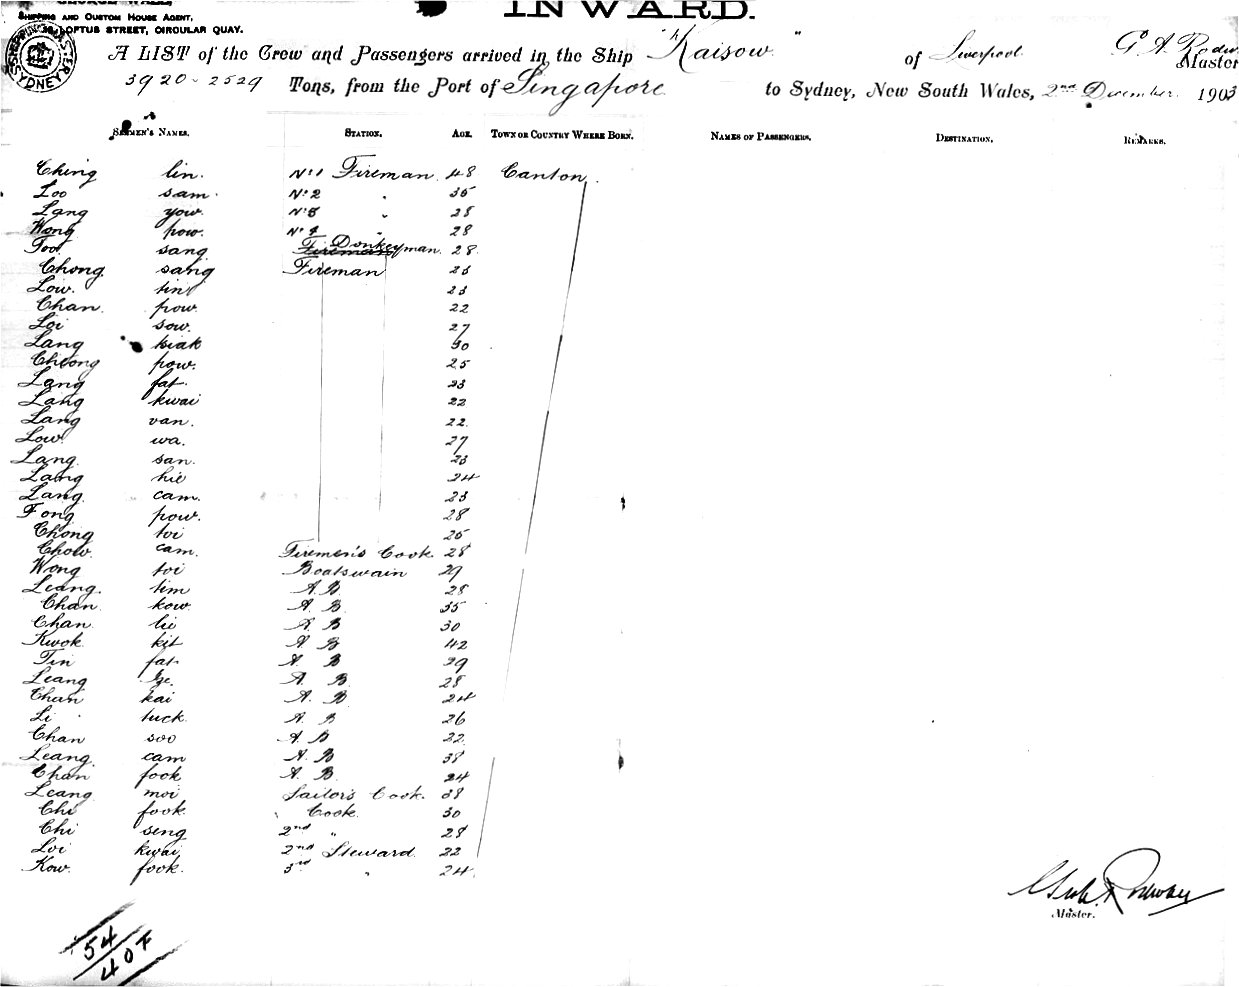 GEORGE WALL,
SHIPPING AND CUSTOM HOUSE AGENT,
LOFTUS STREET, CIRCULAR QUAY.
INWARD.
SHIPPING MASTER SYDNEY
A LIST of the Crew and Passengers arrived in the Ship "Kaisow" of Liverpool G. A. Master
3920 - 2529 Tons, from the Port of Singapore to Sydney, New South Wales, 2nd December 1903
SEAMEN'S NAMES. STATION. AGE. TOWN OR COUNTRY WHERE BORN. NAMES OF PASSENGERS. DESTINATION. REMARKS.
Ching lin. No 1 Fireman 48 Canton
Loo sam. No 2 " 35
Lang yow. No 3 " 28
Wong pow. No 4 " 28
Foo sang Fireman Donkeyman. 28
Chong sang Fireman 23
Low. tin 23
Chan. pow. 22
Loi sow. 27
Lang kiak 30
Cheong pow. 25
Lang fat. 23
Lang kwai 22
Lang van. 22.
Low. wa. 27
Lang san. 23
Lang hie 24
Lang cam. 23
Fong pow. 28
Chong toi 25
Chow. cam. Firemen's Cook 28
Wong toi Boatswain 29
Leang. tim A.B. 28
Chan kow. A. B. 35
Chan lie A. B 30
Kwok kit A B 42
Tin fat A. B 39
Leang A. B. 28
Chan kai A. B 24
Li tuck A. B 26
Chan soo A B 22
Leang. cam A. B 38
Chan fook A. B. 24
Leang moi Sailor's Cook. 38
Chi fook Cook. 30
Chi seng 2nd " 28
Loi kwai 2nd Steward 22
Kow. fook. 3rd " 24
Master.
54
407